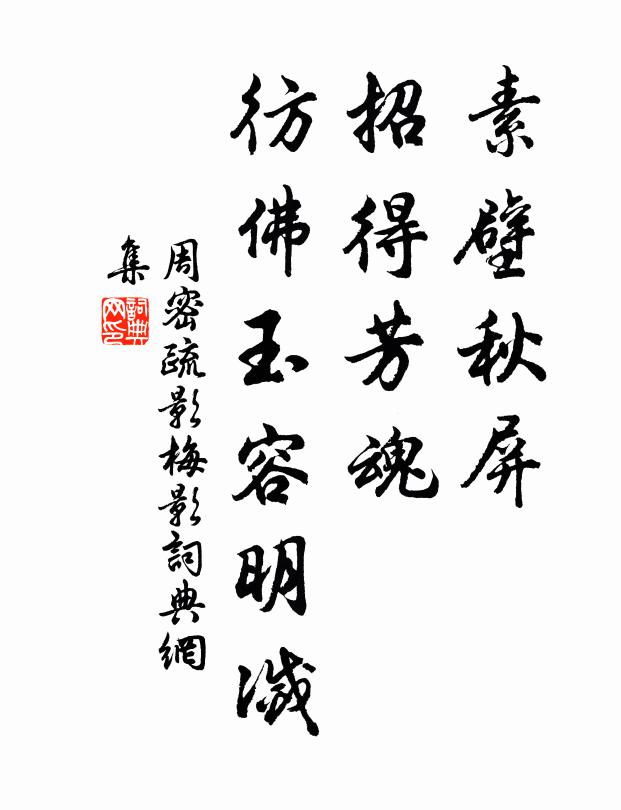 素壁秋屏
招得芳魂
彷佛玉容明滅
周密疏影梅影詞典網
集
詞典
网印